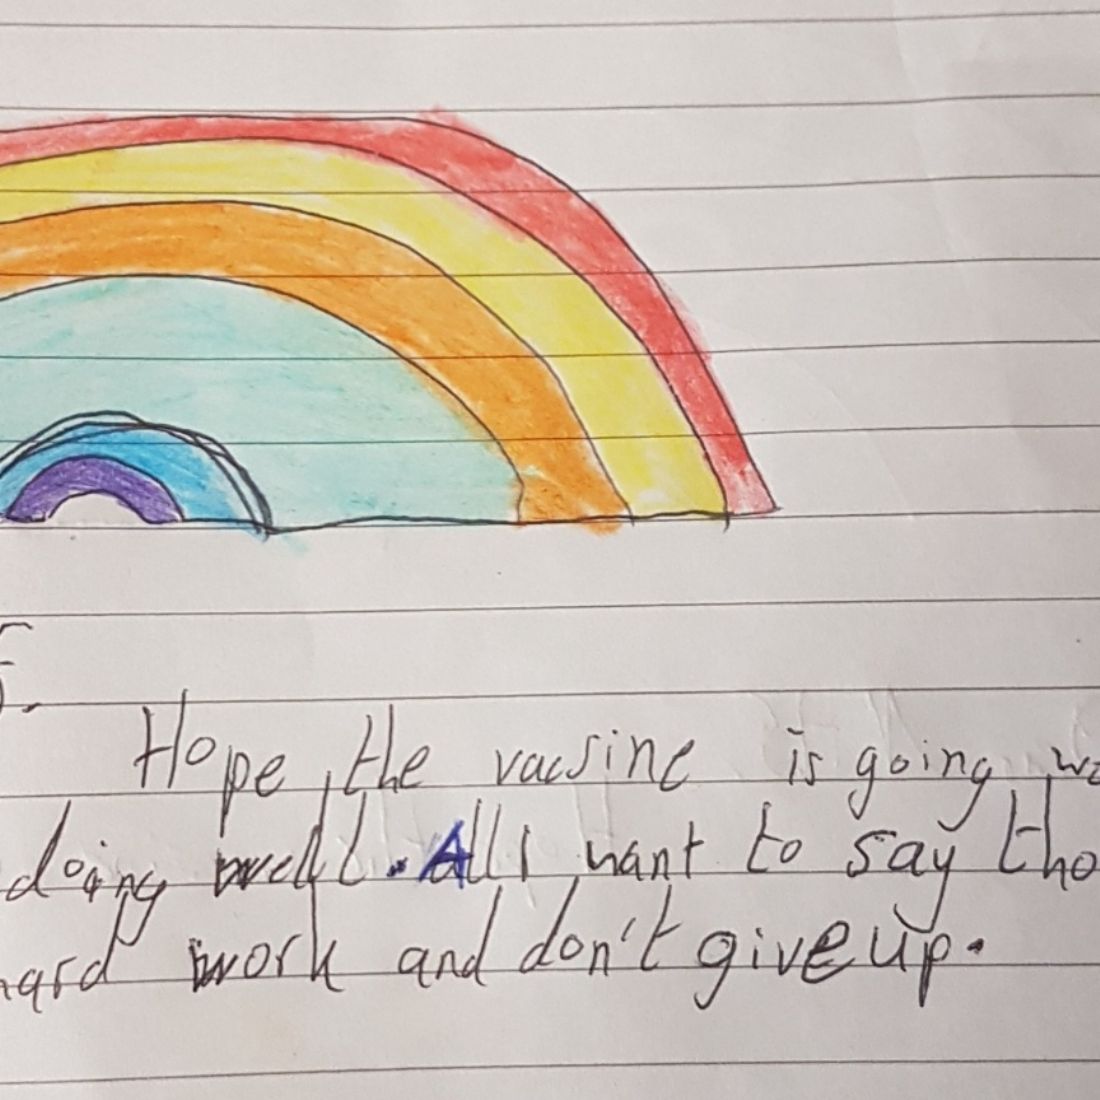 Hope the vacsine is going
doing well. All I want to say
hard work and don't give up.